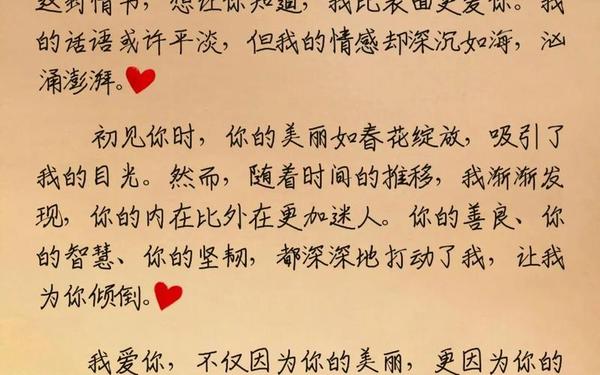 这封情书，想让你知道，我比表面更爱你。我
的话语或许平淡，但我的情感却深沉如海，汹
涌澎湃。
初见你时，你的美丽如春花绽放，吸引了
我的目光。然而，随着时间的推移，我渐渐发
现，你的内在比外在更加迷人。你的善良、你
的智慧、你的坚韧，都深深地打动了我，让我
为你倾倒。
我爱你，不仅因为你的美丽，更因为你的